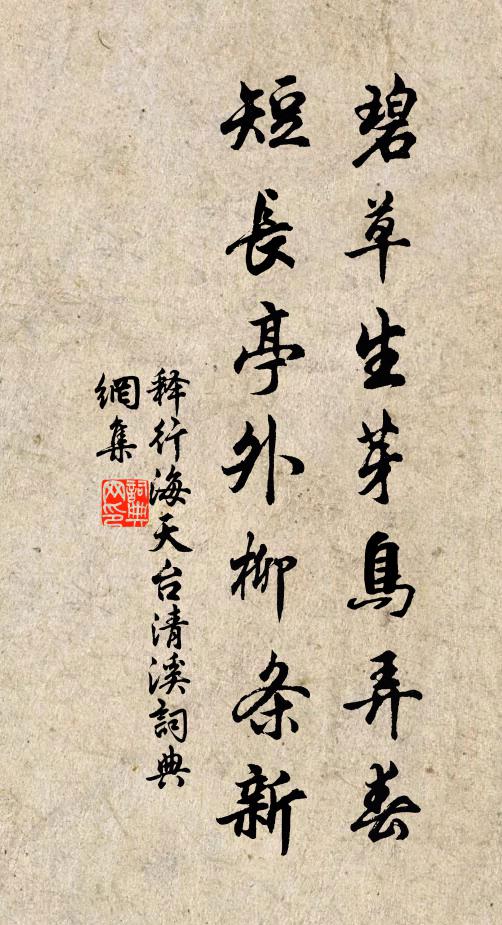 碧草生芽鳥弄春
短長亭外柳条新
释行海天台清溪詞典
網集
詞典
网印